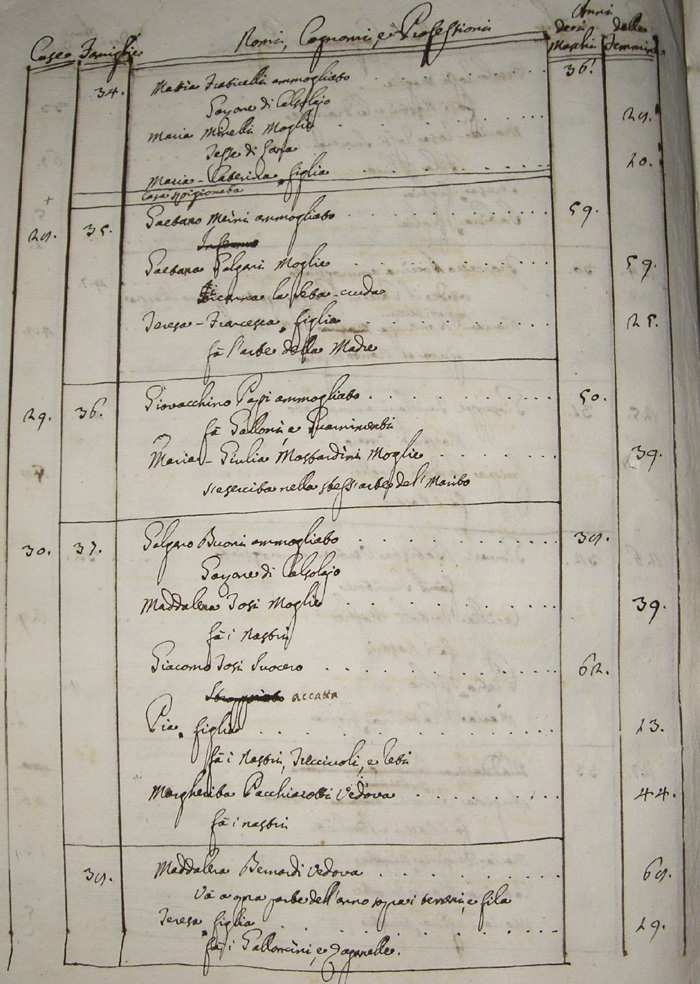 Case Famiglie Nomi, Cognomi, e Professioni Anni dei Maschi delle Femmine
34. Mattia Fraticelli ammogliato 36.
Garzone di Calzolajo
Maria Minelli Moglie
Tesse di
Maria-Caterina figlia 20.
Casa spigionata
35. Gaetano Meini ammogliato 59.
Infermo
Gaetana Pulgari Moglie 59.
Incanna la seta cruda
Teresa-Francesca figlia
fà l'arte della Madre
29. 36. Giovacchino Papi ammogliato 50.
fà Galloni e
Maria-Giulia Mostardini Moglie 39.
s'esercita nella stess'arte del Marito
30. 37. Galgano Buoni ammogliato
Garzone di Calzolajo
Maddalena Tosi Moglie 39.
fà i Nastri
Giacomo Tosi Suocero 62.
Stroppiato accatta
Pia figlia 13.
fà i Nastri, e
Margherita Pacchiarotti Vedova 44.
fà i nastri
Maddalena Bernardi Vedova
Và a opra parte dell'anno sopra i terreni, e fila
Teresa figlia 29.
fà i Galloncini, e Zaganelle.